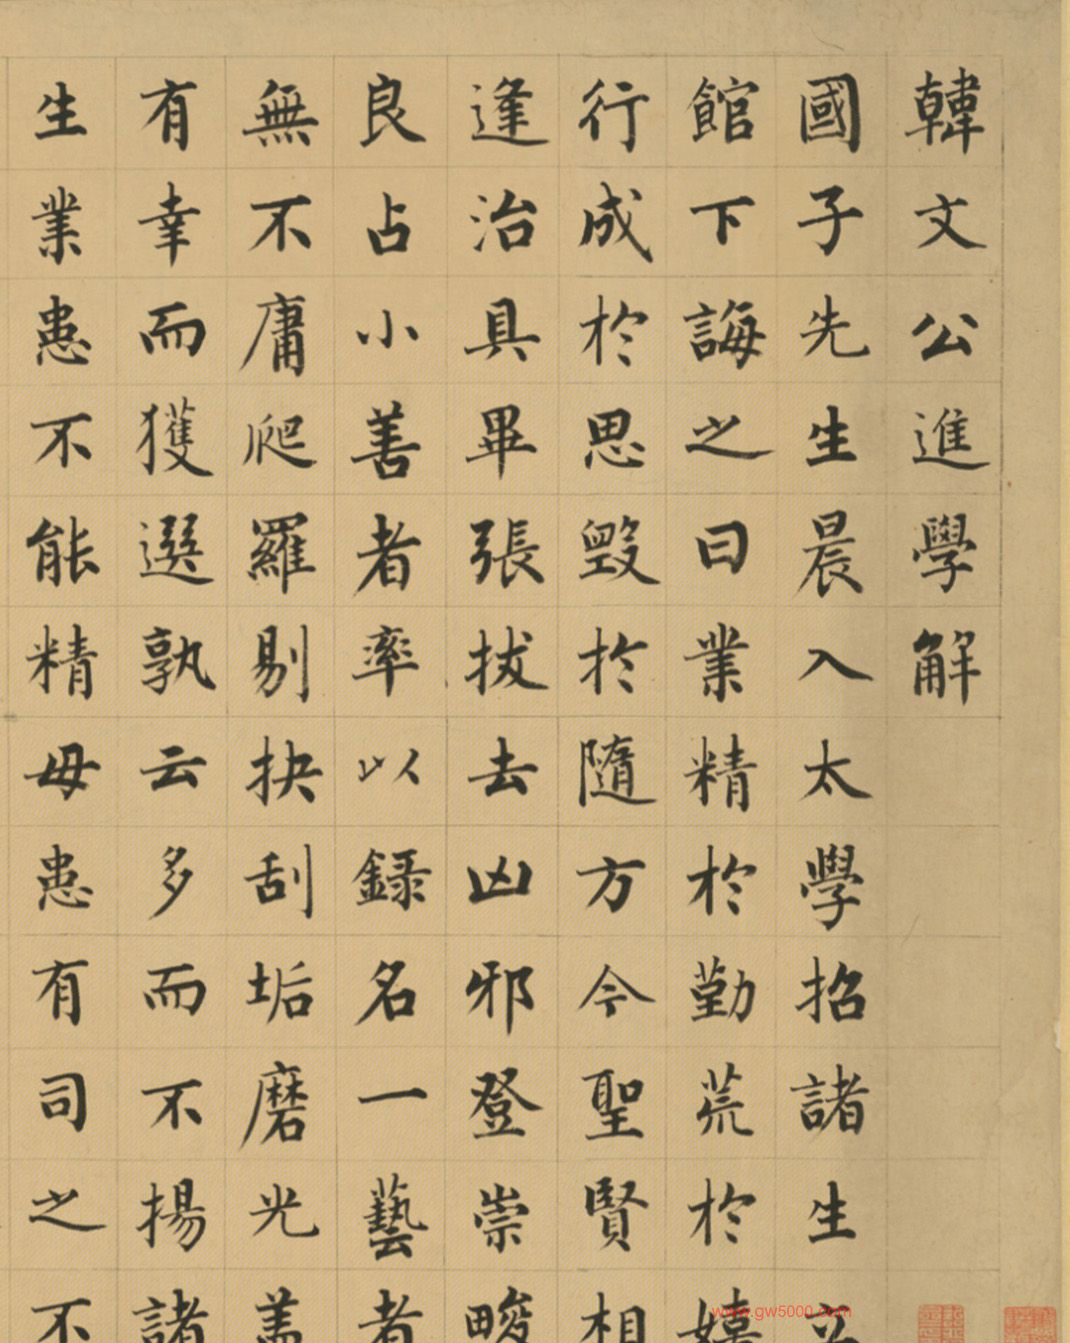 韓文公進學解
國子先生晨入太學招諸生立
館下誨之曰業精於勤荒於嬉
行成於思毀於隨方今聖賢相
逢治具畢張拔去凶邪登崇畯
良占小善者率以録名一藝者
無不庸爬羅剔抉刮垢磨光盖
有幸而獲選孰云多而不揚諸
生業患不能精毋患有司之不
www.gw5000.com